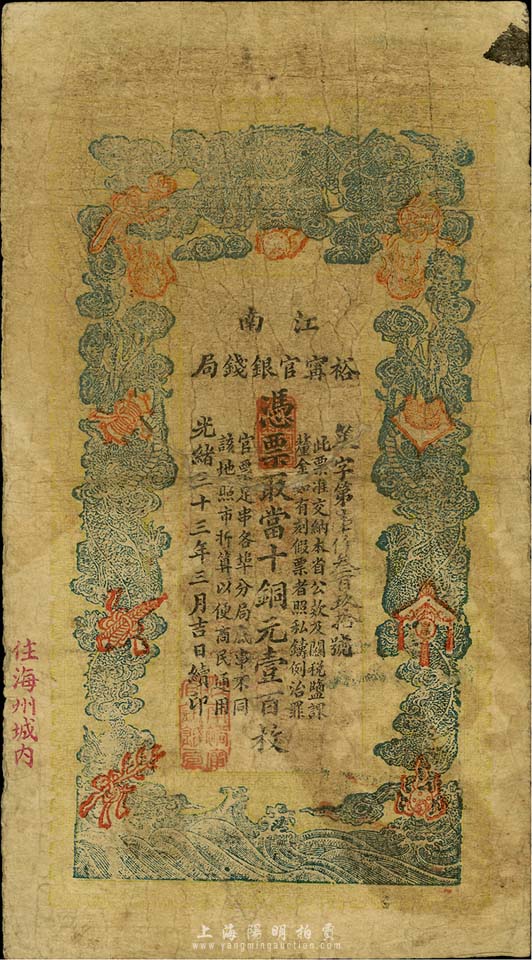 江南
裕寗官銀錢局
字第壹仟叁百玖拾號
此票准交納本省公款及關稅鹽課
釐金如有刻假票者照私鑄例治罪
憑票取當十銅元壹百枚
官票足串各埠分局底事不同
該地照市折算以便商民通用
光緒三十三年三月吉日續印
住海州城内
上海陽明拍賣
www.yangmingauction.com